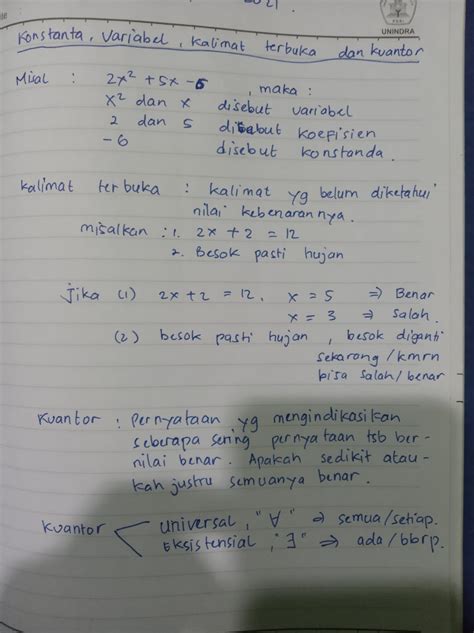 2021.
UNINDRA
Konstanta, Variabel, Kalimat terbuka dan Kuantor
Misal : 2x² + 5x - 6, maka :
x² dan x disebut variabel
2 dan 5 disebut koefisien
-6 disebut konstanda.
Kalimat terbuka : Kalimat yg belum diketahui
nilai kebenarannya.
misalkan : 1. 2x + 2 = 12
2. Besok pasti hujan
Jika (1) 2x + 2 = 12, x = 5 ⇒ Benar
x = 3 ⇒ Salah.
(2) besok pasti hujan, besok diganti
sekarang/kmrn
bisa salah/benar
Kuantor : Pernyataan yg mengindikasikan
seberapa sering pernyataan tsb ber-
nilai benar. Apakah sedikit atau-
kah justru semuanya benar.
Kuantor universal, "∀" ⇒ semua/setiap.
Eksistensial, "∃" ⇒ ada/bbrp.